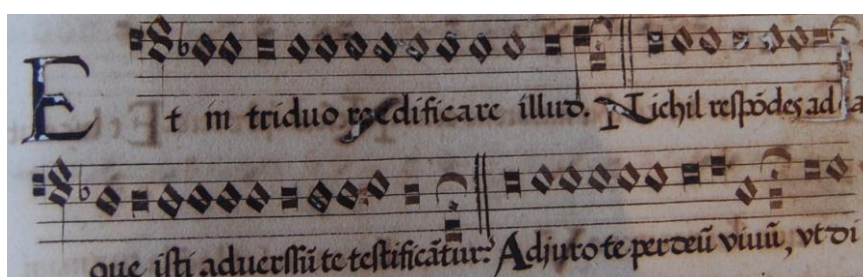 Et in triduo reedificare illud. Nichil respõdes ad ea
que isti aduerssũ te testificãtur? Adjuro te per deũ viuũ, vt di